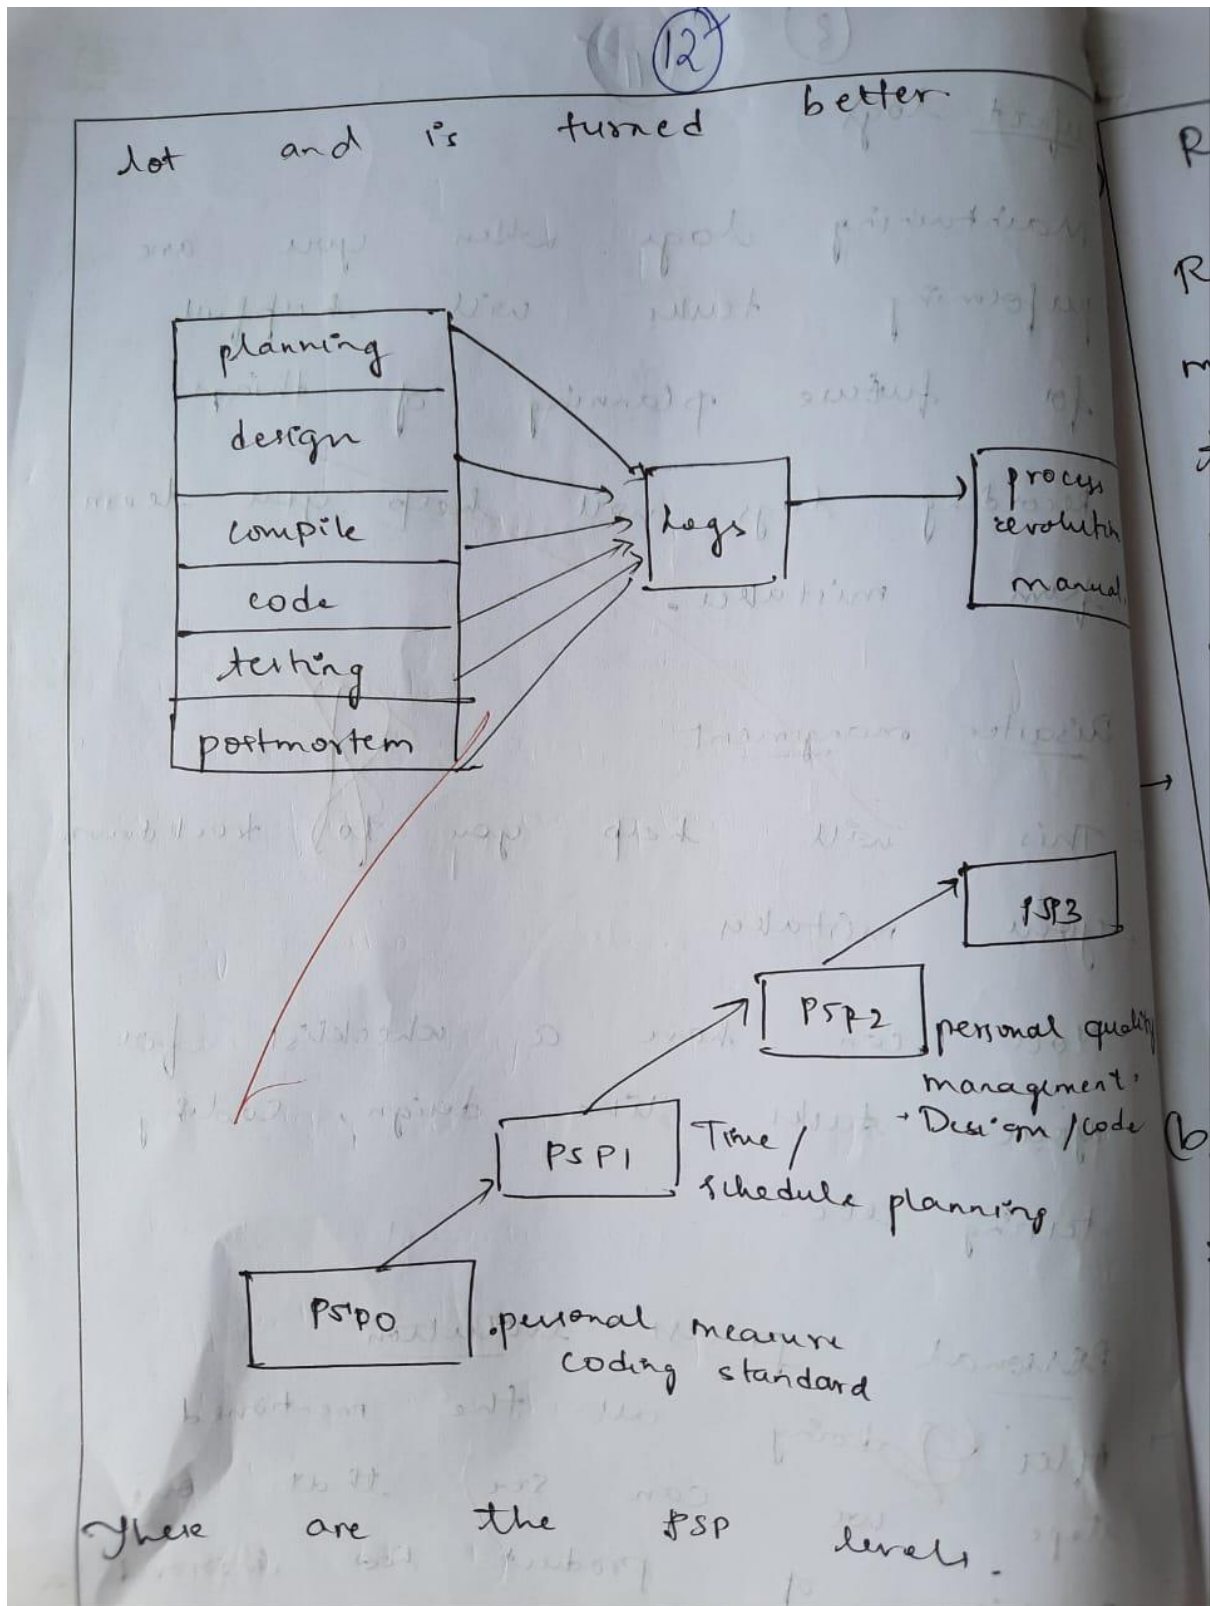 12
lot and is turned better
planning
design
compile
code
testing
postmortem
Logs
process
revolution
manual.
PSP3
PSP2
personal quality
management.
Design / code
PSP1
Time /
schedule planning
PSP0
personal measure
coding standard
These are the PSP levels.
R
R
m
(b